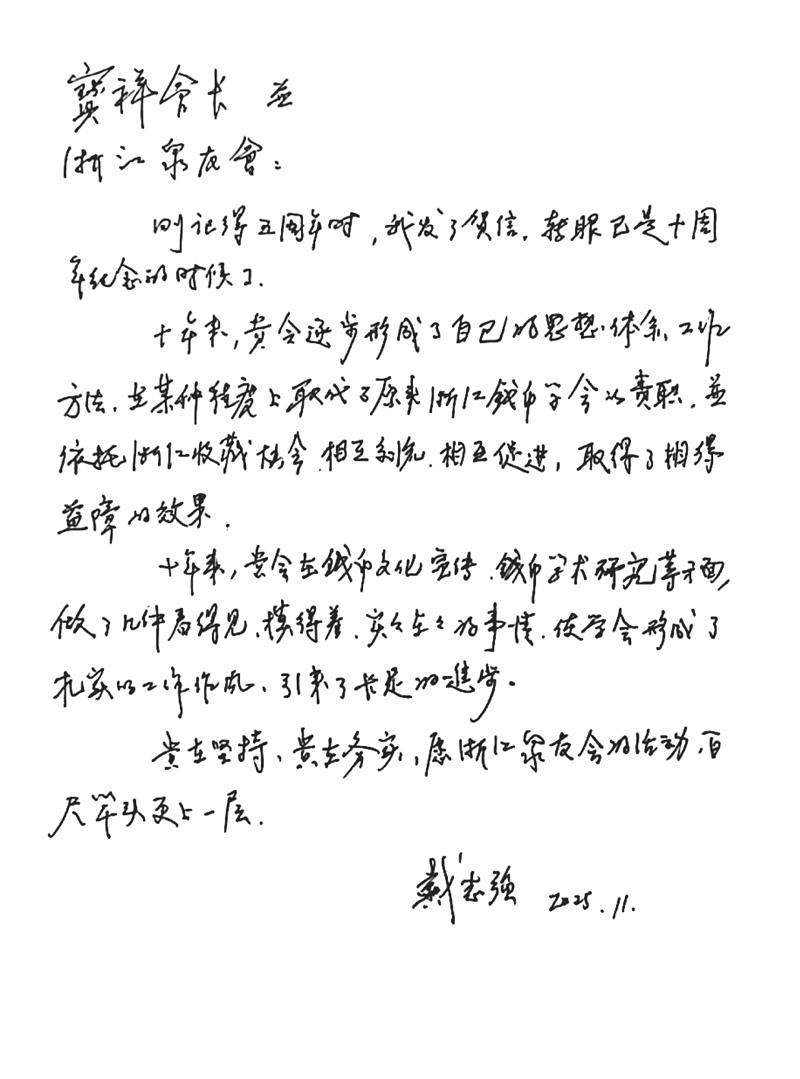 寶祥會长 並
浙江泉友會：
刚记得五周年时，我发了贺信，转眼已是十周
年纪念的时候了。
十年来，贵会逐步形成了自己的思想体系、工作
方法，在某种程度上取代了原来浙江钱币学会的责职，並
依托浙江收藏协会，相互补充，相互促进，取得了相得
益障的效果。
十年来，贵会在钱币文化宣传、钱币学术研究等方面，
做了几件看得见、摸得着、实々在々的事情，使学会形成了
扎实的工作作风、引来了长足的進步。
贵在坚持、贵在务实，愿浙江泉友会的活动，百
尺竿头更上一层。
戴志强 2025.11.